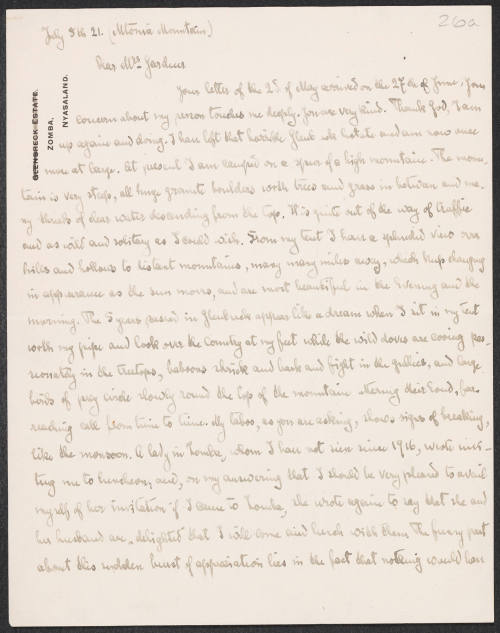 26a
July 8th 21. (Mtonia Mountain)
GLENBRECK ESTATE.
ZOMBA,
NYASALAND.
Dear Mrs Gardner
Your letter of the 2d of May arrived on the 27th of June. Your
concern about my person touches me deeply. You are very kind. Thank God, I am
up again and doing. I have left that horrible Glenbreck Estate and am now once
more at large. At present I am camped on a spur of a high mountain. The moun-
tain is very steep, all huge granite boulders with trees and grass in between and ma-
ny threads of clear water descending from the top. It is quite out of the way of traffic
and as wild and solitary as I could wish. From my tent I have a splendid view over
hills and hollows to distant mountains, many many miles away, which keep changing
in appearance as the sun moves, and are most beautiful in the evening and the
morning. The 5 years passed in Glenbreck appear like a dream when I sit in my tent
with my pipe and look over the country at my feet while the wild doves are cooing pas-
sionately in the treetops, baboons shriek and bark and fight in the gullies, and large
birds of prey circle slowly round the top of the mountain uttering their loud, far-
reaching call from time to time. My taboo, as you are asking, shows signs of breaking,
like the monsoon. A lady in Zomba, whom I have not seen since 1916, wrote invi-
ting me to luncheon, and, on my answering that I should be very pleased to avail
myself of her invitation if I came to Zomba, she wrote again to say that she and
her husband are delighted that I will come and lunch with them. The funny part
about this sudden burst of appreciation lies in the fact that nothing would have